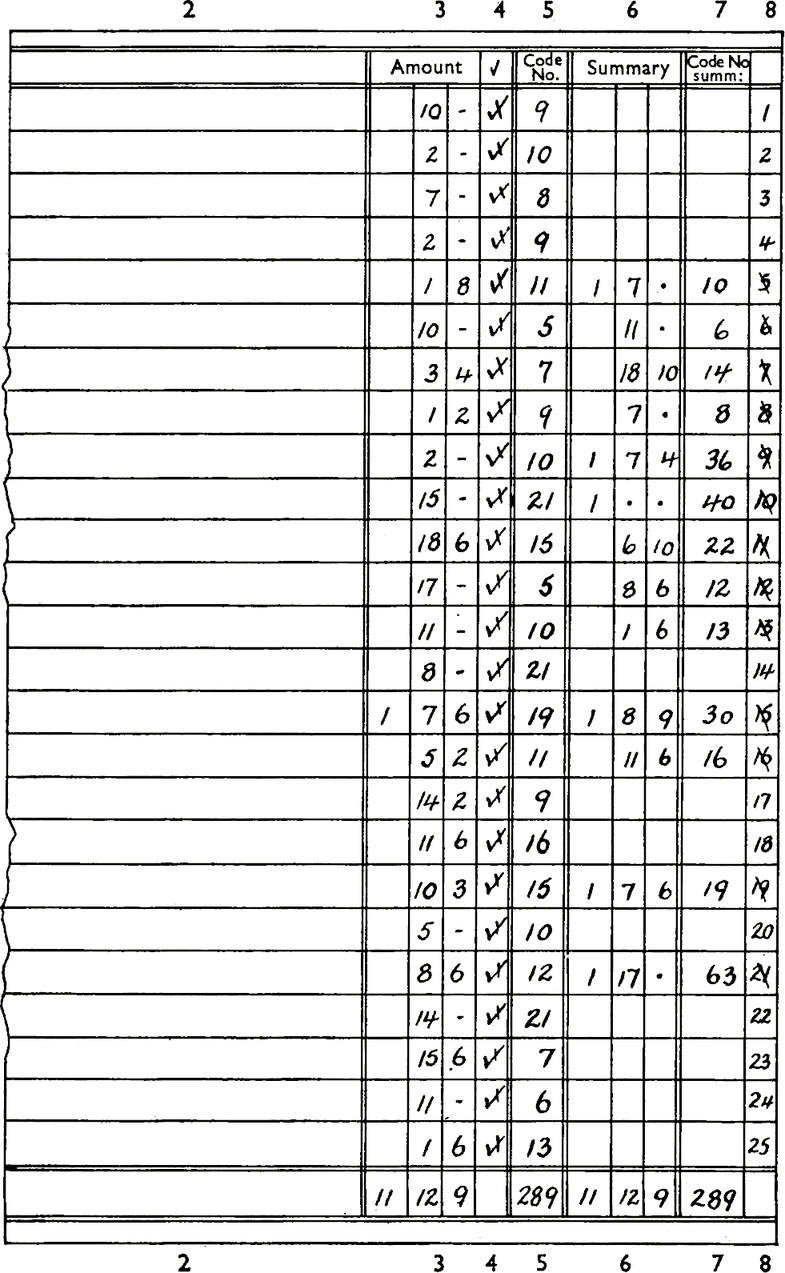 2 3 4 5 6 7 8
Amount ✓ Code No. Summary Code No summ:
10 - ✓ 9 1
2 - ✓ 10 2
7 - ✓ 8 3
2 - ✓ 9 4
1 8 ✓ 11 1 7 · 10 5
10 - ✓ 5 11 · 6 6
3 4 ✓ 7 18 10 14 7
1 2 ✓ 9 7 · 8 8
2 - ✓ 10 1 7 4 36 9
15 - ✓ 21 1 · · 40 10
18 6 ✓ 15 6 10 22 11
17 - ✓ 5 8 6 12 12
11 - ✓ 10 1 6 13 13
8 - ✓ 21 14
1 7 6 ✓ 19 1 8 9 30 15
5 2 ✓ 11 11 6 16 16
14 2 ✓ 9 17
11 6 ✓ 16 18
10 3 ✓ 15 1 7 6 19 19
5 - ✓ 10 20
8 6 ✓ 12 1 17 · 63 21
14 - ✓ 21 22
15 6 ✓ 7 23
11 - ✓ 6 24
1 6 ✓ 13 25
11 12 9 289 11 12 9 289
2 3 4 5 6 7 8